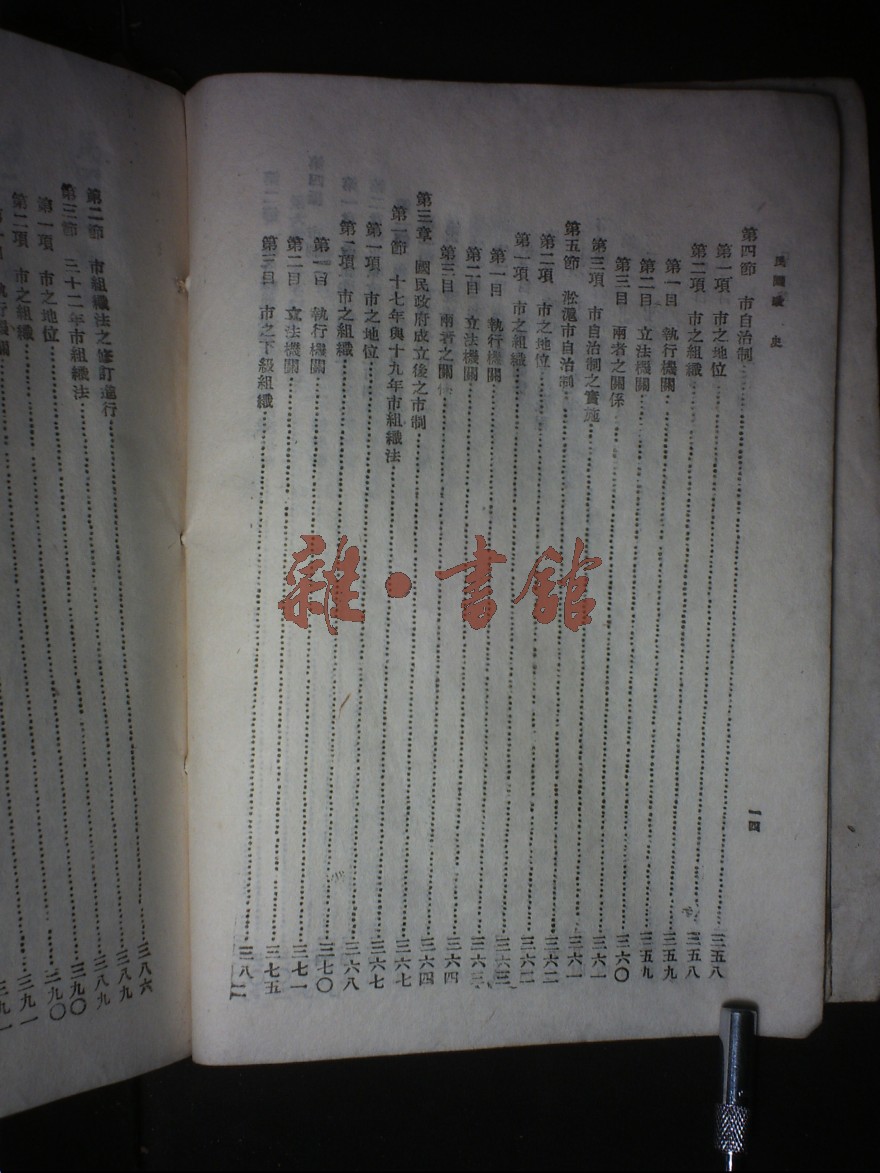 民國政史
第四節 市自治制 三五八
第一項 市之地位 三五八
第二項 市之組織 三五八
第一目 執行機關 三五九
第二目 立法機關 三五九
第三目 兩者之關係 三六〇
第三項 市自治制之實施 三六一
第五節 淞滬市自治制 三六一
第一項 市之地位 三六二
第二項 市之組織 三六二
第一目 執行機關 三六三
第二目 立法機關 三六三
第三目 兩者之關係 三六四
第三章 國民政府成立後之市制 三六四
第一節 十七年與十九年市組織法 三六七
第一項 市之地位 三六七
第二項 市之組織 三六八
第一目 執行機關 三七〇
第二目 立法機關 三七一
第三目 市之下級組織 三七五
三八二
一四
第二節 市組織法之修訂進行 三八六
第三節 三十二年市組織法 三八九
第一項 市之地位 三八九
第二項 市之組織 三九〇
第一目 執行機關 三九〇
三九一
三九一
雜·書館